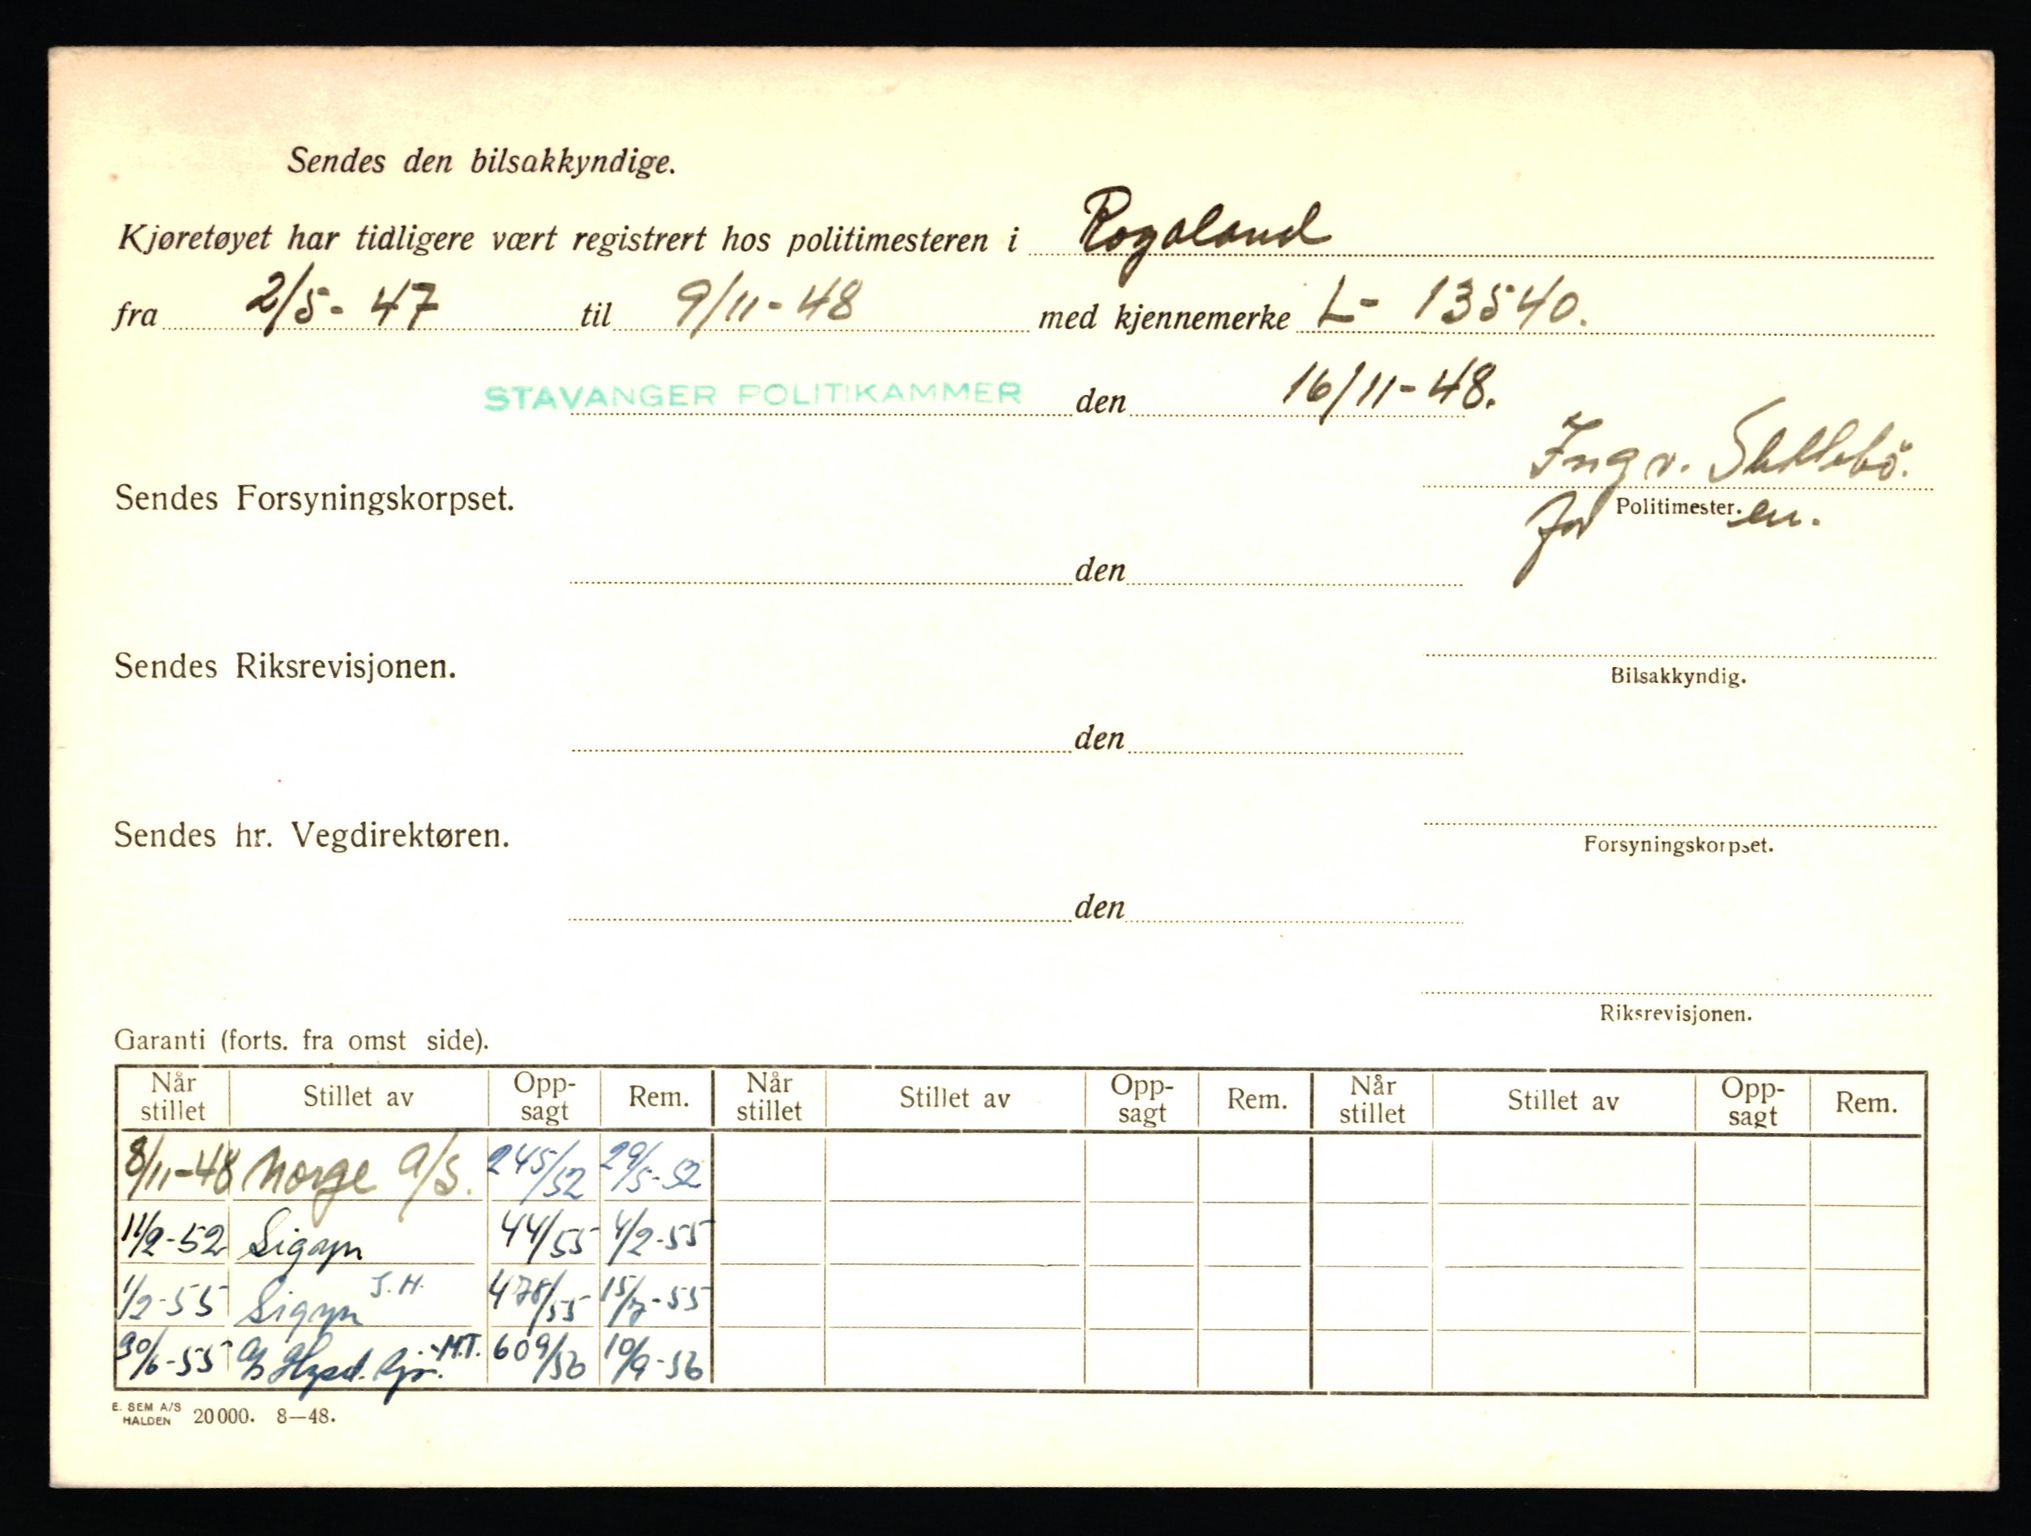 Sendes den bilsakkyndige.
Kjøretøyet har tidligere vært registrert hos politimesteren i Rogaland
fra 2/5- 47 til 9/11-48 med kjennemerke L- 13540.
STAVANGER POLITIKAMMER den 16/11-48.
Ingv.
Sendes Forsyningskorpset.
for Politimester. en.
den
Sendes Riksrevisjonen.
Bilsakkyndig.
den
Sendes hr. Vegdirektøren.
Forsyningskorpset.
den
Riksrevisjonen.
Garanti (forts. fra omst side).
Når stillet Stillet av Opp-sagt Rem. Når stillet Stillet av Opp-sagt Rem. Når stillet Stillet av Opp-sagt Rem.
8/11-48 Norge A/S. 245/52 29/5-52
11/2-52 Sigyn 44/55 4/2-55
1/2-55 Sigyn J.H. 478/55 15/7-55
30/6-55 M.T. 609/56 10/9-56
E. SEM A/S HALDEN 20000. 8—48.